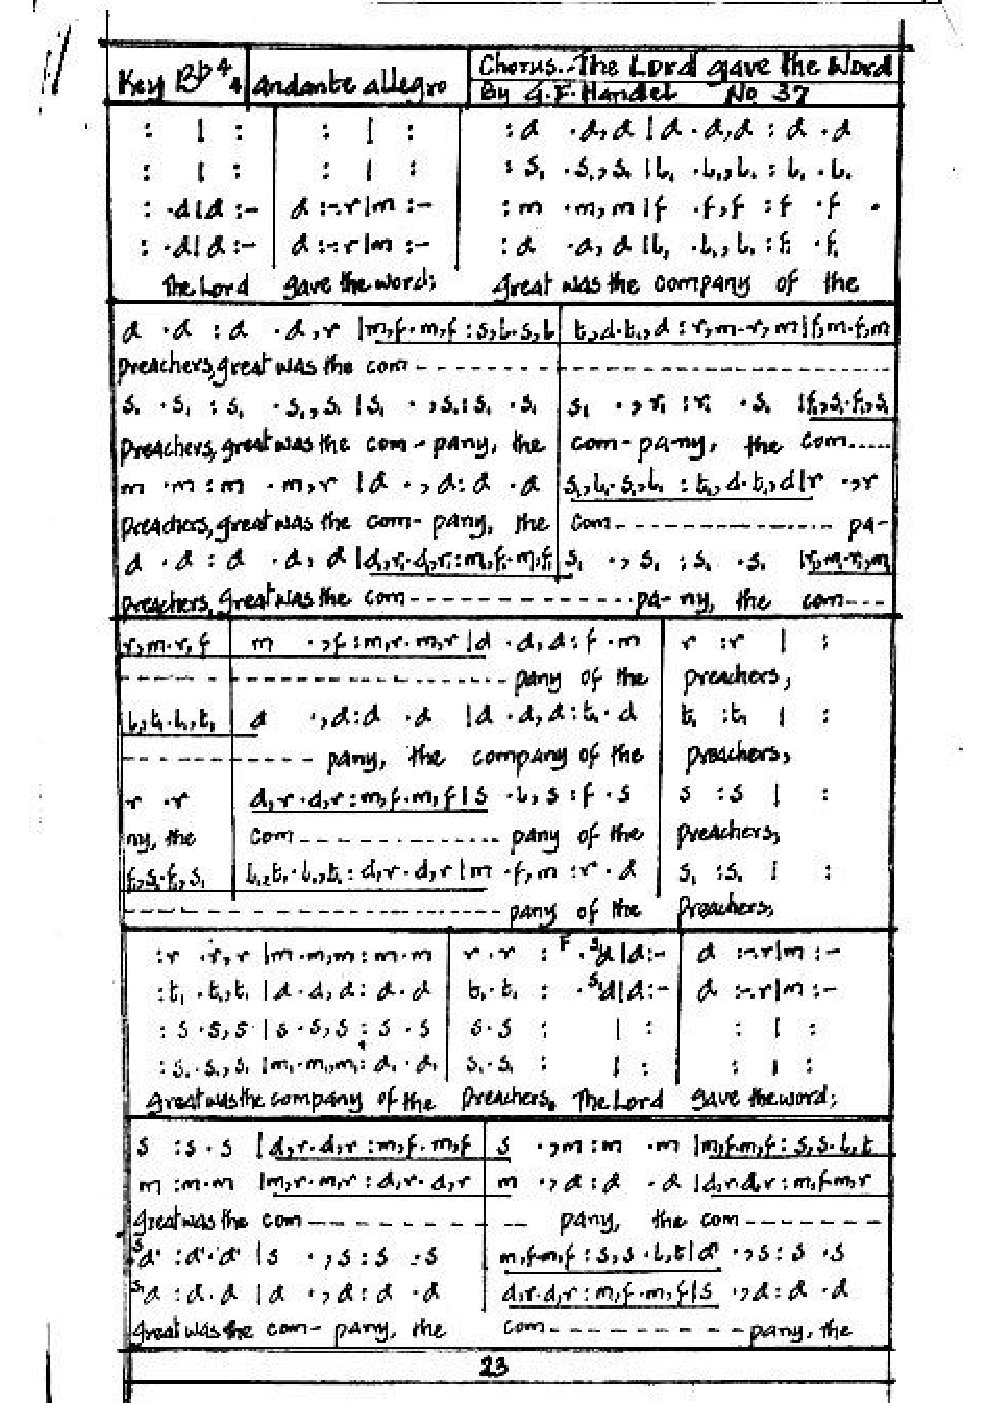 Key B♭ 4/4 Andante allegro Chorus.. The Lord gave the Word
By G.F. Handel No 37
: | : : | : : d . d , d | d . d , d : d . d
: | : : | : : s₁ . s₁ , s₁ | l₁ . l₁ , l₁ : l₁ . l₁
: . d | d : - d : - . r | m : - : m . m , m | f . f , f : f . f
: . d | d : - d : - . r | m : - : d . d , d | l₁ . l₁ , l₁ : f₁ . f₁
The Lord gave the word; great was the company of the
d . d : d . d , r | m , f . m , f : s , l . s , l t₁ , d . t₁ , d : r , m . r , m | f , m . f , m
preachers, great was the com - - - - - - - - - - - -
s₁ . s₁ : s₁ . s₁ , s₁ | s₁ . , s₁ : s₁ . s₁ s₁ . , r₁ : r₁ . s₁ | f₁ , s₁ . f₁ , s₁
Preachers, great was the com - pany, the com - pa - ny, the com.....
m . m : m . m , r | d . , d : d . d s₁ , l₁ . s₁ , l₁ : t₁ , d . t₁ , d | r . , r
preachers, great was the com - pany, the com - - - - - - - - pa -
d . d : d . d , d | d₁ , r₁ . d₁ , r₁ : m₁ , f₁ . m₁ , f₁ s₁ . , s₁ : s₁ . s₁ | r₁ , m₁ . r₁ , m₁
preachers, great was the com - - - - - - - - pa - ny, the com - - -
r , m . r , f m . , f : m , r . m , r | d . d , d : f . m r : r | :
- - - - - - - - - - - - pany of the preachers,
l₁ , t₁ . l₁ , t₁ d . , d : d . d | d . d , d : t₁ . d t₁ : t₁ | :
- - - - - - - - pany, the company of the preachers,
r . r d , r . d , r : m , f . m , f | s . l , s : f . s s : s | :
ny, the com - - - - - - - - pany of the preachers,
f₁ , s₁ . f₁ , s₁ l₁ , t₁ . l₁ , t₁ : d , r . d , r | m . f , m : r . d s₁ : s₁ | :
- - - - - - - - - - - - pany of the Preachers,
: r . r , r | m . m , m : m . m r . r : F . ˢd | d : - d : - . r | m : -
: t₁ . t₁ , t₁ | d . d , d : d . d t₁ . t₁ : . ˢd | d : - d : - . r | m : -
: s . s , s | s . s , s : s . s s . s : | : : | :
: s₁ . s₁ , s₁ | m₁ . m₁ , m₁ : d₁ . d₁ s₁ . s₁ : | : : | :
great was the company of the preachers. The Lord gave the word;
s : s . s | d , r . d , r : m , f . m , f s . , m : m . m | m , f . m , f : s , s . l , t
m : m . m | m , r . m , r : d , r . d , r m . , d : d . d | d , r . d , r : m , f . m , r
great was the com - - - - - - - - pany, the com - - - - - - -
ˢd' : d' . d' | s . , s : s . s m , f . m , f : s , s . l , t | d' . , s : s . s
ˢd : d . d | d . , d : d . d d , r . d , r : m , f . m , f | s . , d : d . d
great was the com - pany, the com - - - - - - - - pany, the
23